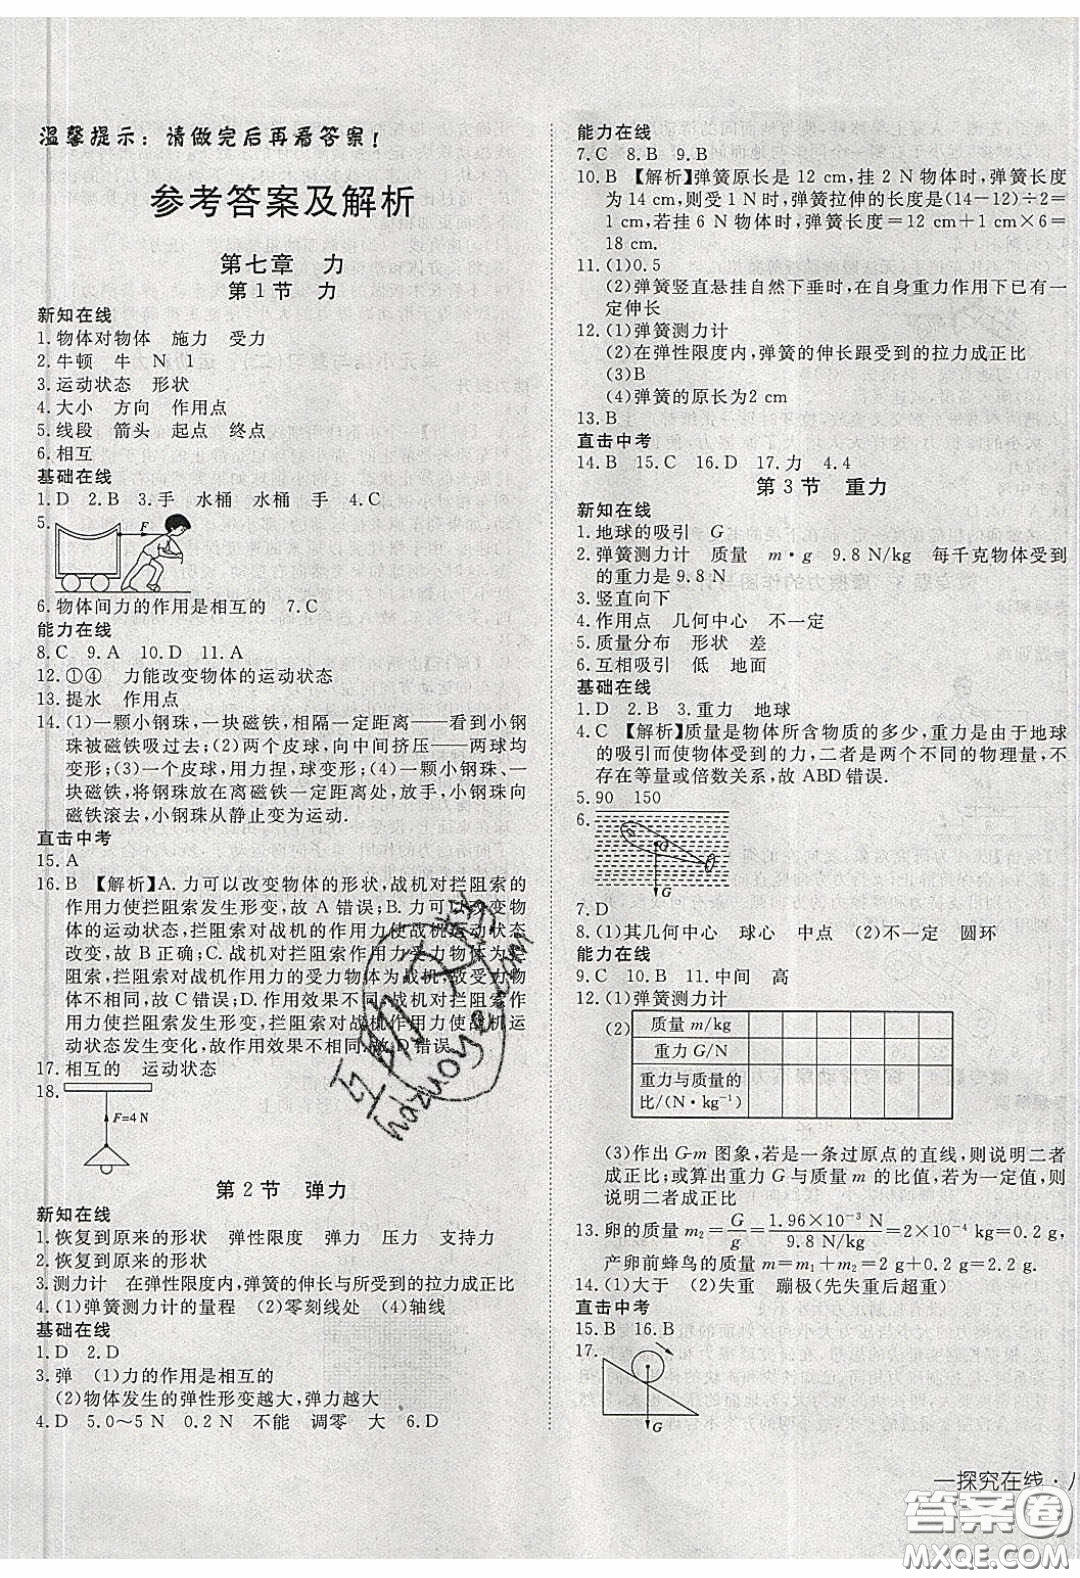 温馨提示：请做完后再看答案！
参考答案及解析
第七章　力
第1节　力
新知在线
1.物体对物体　施力　受力
2.牛顿　牛　N　1
3.运动状态　形状
4.大小　方向　作用点
5.线段　箭头　起点　终点
6.相互
基础在线
1.D　2.B　3.手　水桶　水桶　手　4.C
5.
F
6.物体间力的作用是相互的　7.C
能力在线
8.C　9.A　10.D　11.A
12.①④　力能改变物体的运动状态
13.提水　作用点
14.(1)一颗小钢珠，一块磁铁，相隔一定距离——看到小钢
珠被磁铁吸过去；(2)两个皮球，向中间挤压——两球均
变形；(3)一个皮球，用力捏，球变形；(4)一颗小钢珠、一
块磁铁，将钢珠放在离磁铁一定距离处，放手，小钢珠向
磁铁滚去，小钢珠从静止变为运动.
直击中考
15.A
16.B　【解析】A.力可以改变物体的形状，战机对拦阻索的
作用力使拦阻索发生形变，故A错误；B.力可以改变物
体的运动状态，拦阻索对战机的作用力使战机运动状态
改变，故B正确；C.战机对拦阻索作用力的受力物体为拦
阻索，拦阻索对战机作用力的受力物体为战机，故受力物
体不同，故C错误；D.作用效果不同，战机对拦阻索的作
用力使拦阻索发生形变，拦阻索对战机作用力使战机运
动状态发生变化，故作用效果不同.故D错误.
17.相互的　运动状态
18.
F=4 N
第2节　弹力
新知在线
1.恢复到原来的形状　弹性限度　弹力　压力　支持力
2.恢复到原来的形状
3.测力计　在弹性限度内，弹簧的伸长与所受到的拉力成正比
4.(1)弹簧测力计的量程　(2)零刻线处　(4)轴线
基础在线
1.D　2.D
3.弹　(1)力的作用是相互的
(2)物体发生的弹性形变越大，弹力越大
4.D　5.0～5 N　0.2 N　不能　调零　大　6.D
能力在线
7.C　8.B　9.B
10.B　【解析】弹簧原长是12 cm，挂2 N物体时，弹簧长度
为14 cm，则受1 N时，弹簧拉伸的长度是(14－12)÷2＝
1 cm。若挂6 N物体时，弹簧长度＝12 cm＋1 cm×6＝
18 cm.
11.(1)0.5
(2)弹簧竖直悬挂自然下垂时，在自身重力作用下已有一
定伸长
12.(1)弹簧测力计
(2)在弹性限度内，弹簧的伸长跟受到的拉力成正比
(3)B
(4)弹簧的原长为2 cm
13.B
直击中考
14.B　15.C　16.D　17.力　4.4
第3节　重力
新知在线
1.地球的吸引　G
2.弹簧测力计　质量　m·g　9.8 N/kg　每千克物体受到
的重力是9.8 N
3.竖直向下
4.作用点　几何中心　不一定
5.质量分布　形状　差
6.互相吸引　低　地面
基础在线
1.D　2.B　3.重力　地球
4.C　【解析】质量是物体所含物质的多少，重力是由于地球
的吸引而使物体受到的力，二者是两个不同的物理量，不
存在等量或倍数关系，故ABD错误.
5.90　150
6.
O
G
7.D
8.(1)其几何中心　球心　中点　(2)不一定　圆环
能力在线
9.C　10.B　11.中间　高
12.(1)弹簧测力计
(2)
质量 m/kg
重力 G/N
重力与质量的
比/(N·kg⁻¹)
(3)作出G-m图象，若是一条过原点的直线，则说明二者
成正比；或算出重力G与质量m的比值，若为一定值，则
说明二者成正比
13.卵的质量m₂＝G/g＝1.96×10⁻³ N/9.8 N/kg＝2×10⁻⁴ kg＝0.2 g，
产卵前蜂鸟的质量m＝m₁＋m₂＝2 g＋0.2 g＝2.2 g.
14.(1)大于　(2)失重　蹦极(先失重后超重)
直击中考
15.B　16.B
17.
G
一探究在线·八
互助文档
hdzuoye.com
答案圈
MXQE.COM